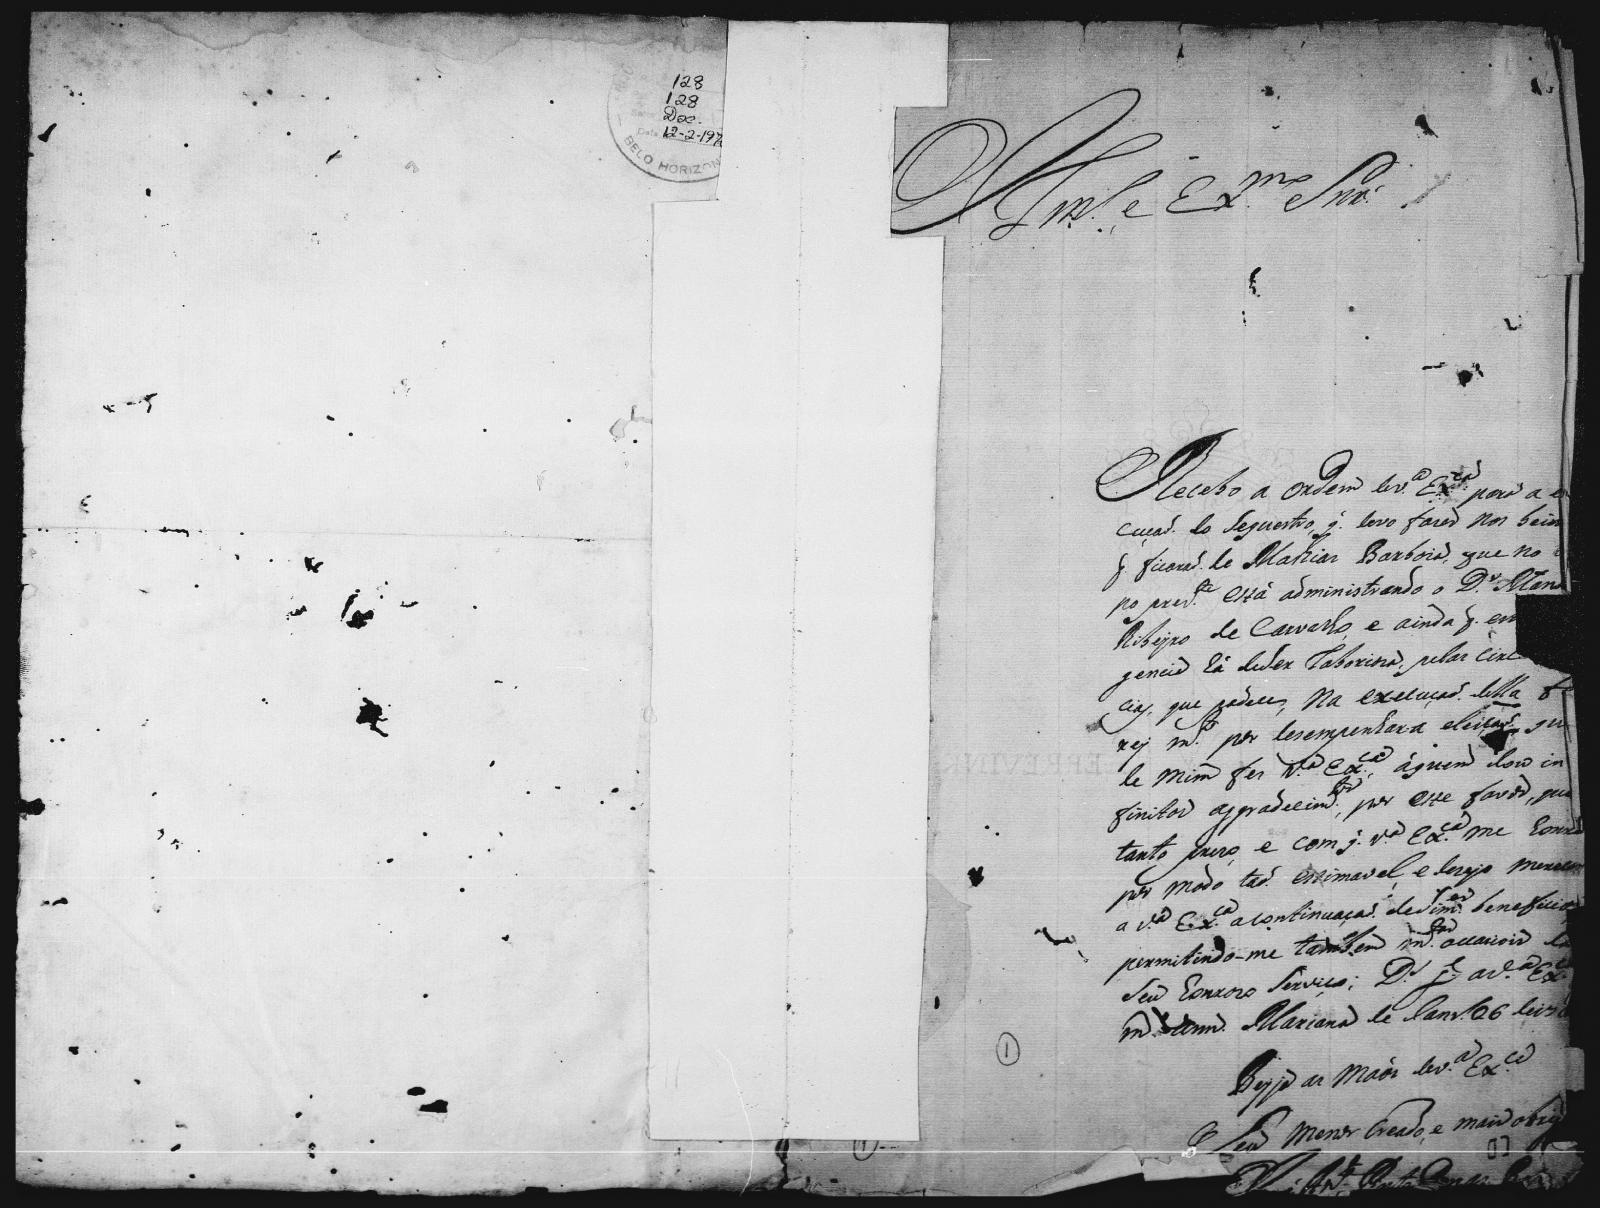 128
128
Doc.
12-2-197
BELO HORIZON
Illm.º e Exmº Snr.
Recebo a ordem de V.ª Ex.ca para a e
cuçaõ do sequestro, q. devo fazer nos beins
q. ficaraõ de Mathias Barboza, que no
no prez.te está administrando o D.r Mano
Ribeyro de Carvalho, e ainda q. em
gencia há de ser laborioza, pelas circ
cias, que padece, na execuçaõ della f
rey m.to por desempenhar a eleiçaõ, que
de mim fez V.ª Ex.ca, á quem dou in
finitos aggradecim.tos, por este favor, que
tanto prezo, e com q. V.ª Ex.ca me honra
por modo taõ estimavel, e dezejo merecer
a V.ª Ex.ca a continuaçaõ de beneficio
permitindo-me tambem m.tas occazioins do
seu honrozo serviço; D.s g.e a V.ª Ex.ca
m. ann. Marianna de Janr.º 26 de 17
Beyja as maõs de V.ª Ex.ca
Seu menor Creado, e mais obrig
1
1